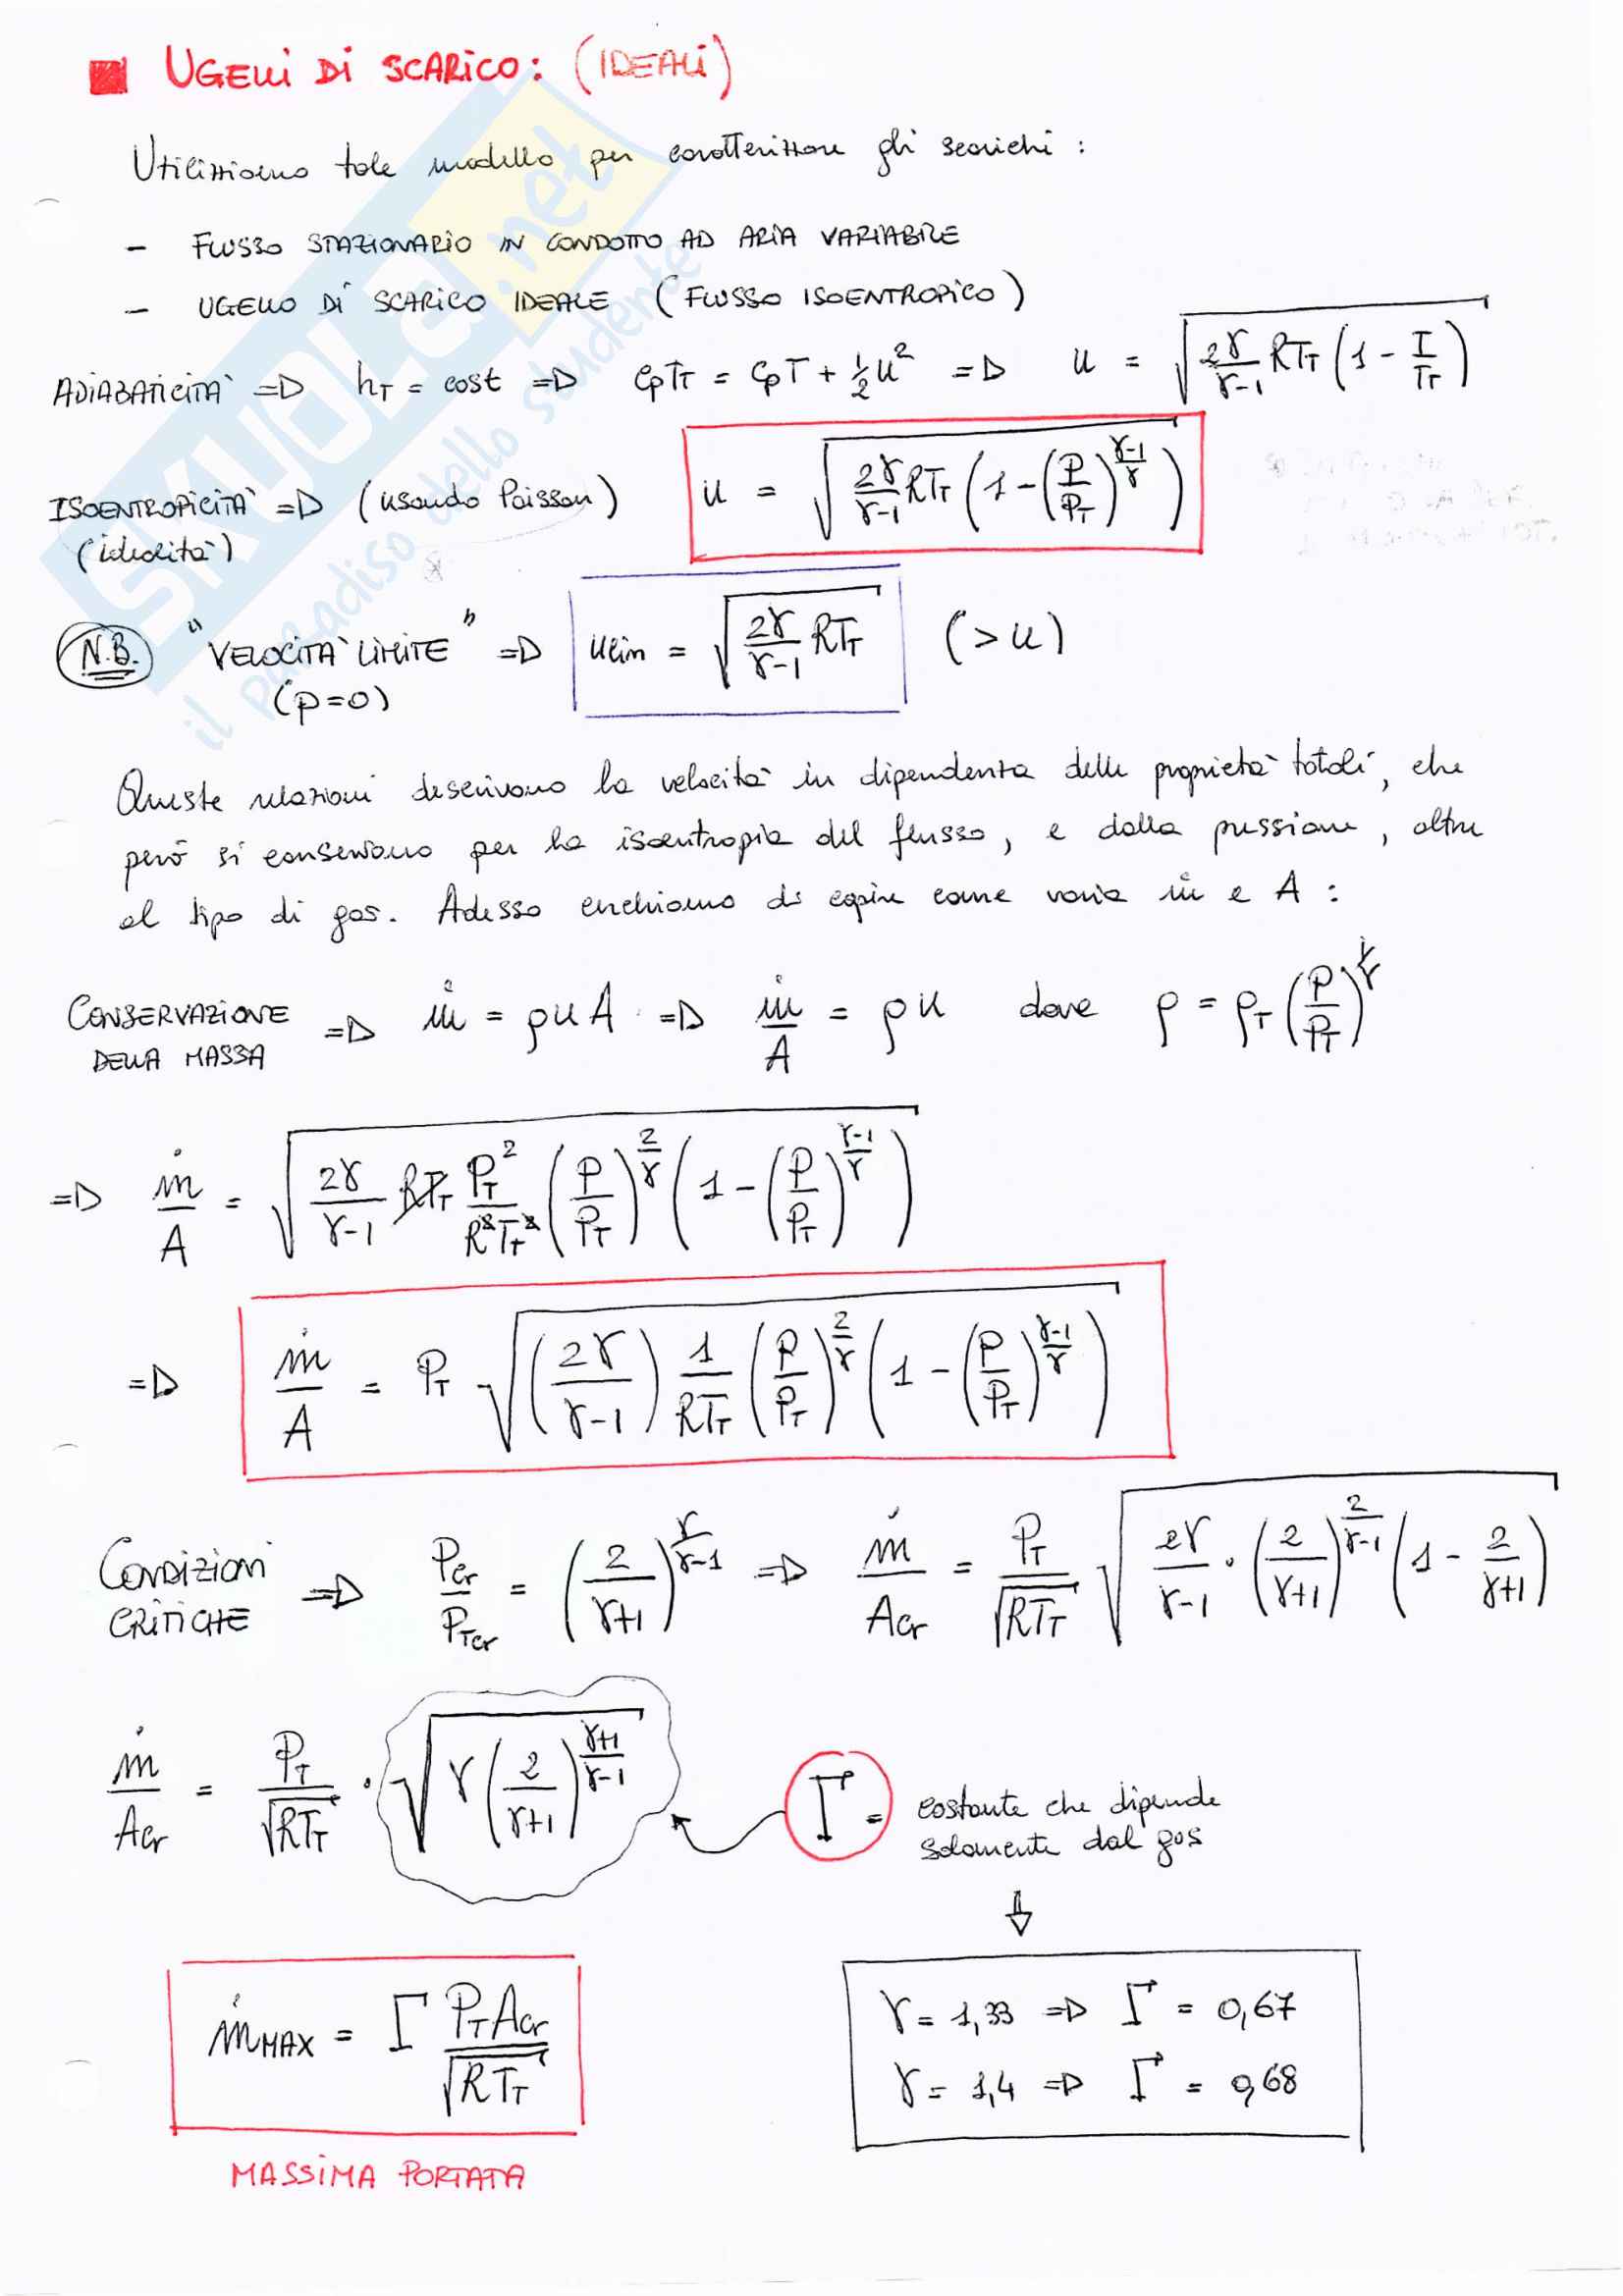 ■ UGELLI DI SCARICO: (IDEALI)
Utilizziamo tale modello per caratterizzare gli scarichi :
- FLUSSO STAZIONARIO IN CONDOTTO AD ARIA VARIABILE
- UGELLO DI SCARICO IDEALE (FLUSSO ISOENTROPICO)
ADIABATICITÀ => h_T = cost => c_p T_T = c_p T + 1/2 u² => u = √(2γ/(γ-1) RT_T (1 - T/T_T))
ISOENTROPICITÀ => (usando Poisson) u = √(2γ/(γ-1) RT_T (1 - (P/P_T)^((γ-1)/γ)))
(idealità)
N.B. "VELOCITÀ LIMITE" => u_lim = √(2γ/(γ-1) RT_T) (> u)
(p=0)
Queste relazioni descrivono la velocità in dipendenza delle proprietà totali, che
però si conservano per la isoentropia del flusso, e dalla pressione, oltre
al tipo di gas. Adesso cerchiamo di capire come varia ṁ e A :
CONSERVAZIONE DELLA MASSA => ṁ = ρuA => ṁ/A = ρu dove ρ = ρ_T (P/P_T)^(1/γ)
=> ṁ/A = √(2γ/(γ-1) RT_T P_T²/(R²T_T²) (P/P_T)^(2/γ) (1 - (P/P_T)^((γ-1)/γ)))
=> ṁ/A = P_T √((2γ/(γ-1)) 1/(RT_T) (P/P_T)^(2/γ) (1 - (P/P_T)^((γ-1)/γ)))
CONDIZIONI CRITICHE => P_cr/P_Tcr = (2/(γ+1))^(γ/(γ-1)) => ṁ/A_cr = P_T/√(RT_T) √(2γ/(γ-1) · (2/(γ+1))^(2/(γ-1)) (1 - 2/(γ+1)))
ṁ/A_cr = P_T/√(RT_T) · √(γ (2/(γ+1))^((γ+1)/(γ-1))) Γ = costante che dipende
solamente dal gas
ṁ_MAX = Γ P_T A_cr/√(RT_T)
MASSIMA PORTATA
γ = 1,33 => Γ = 0,67
γ = 1,4 => Γ = 0,68
SKUOLA.net
il paradiso dello studente